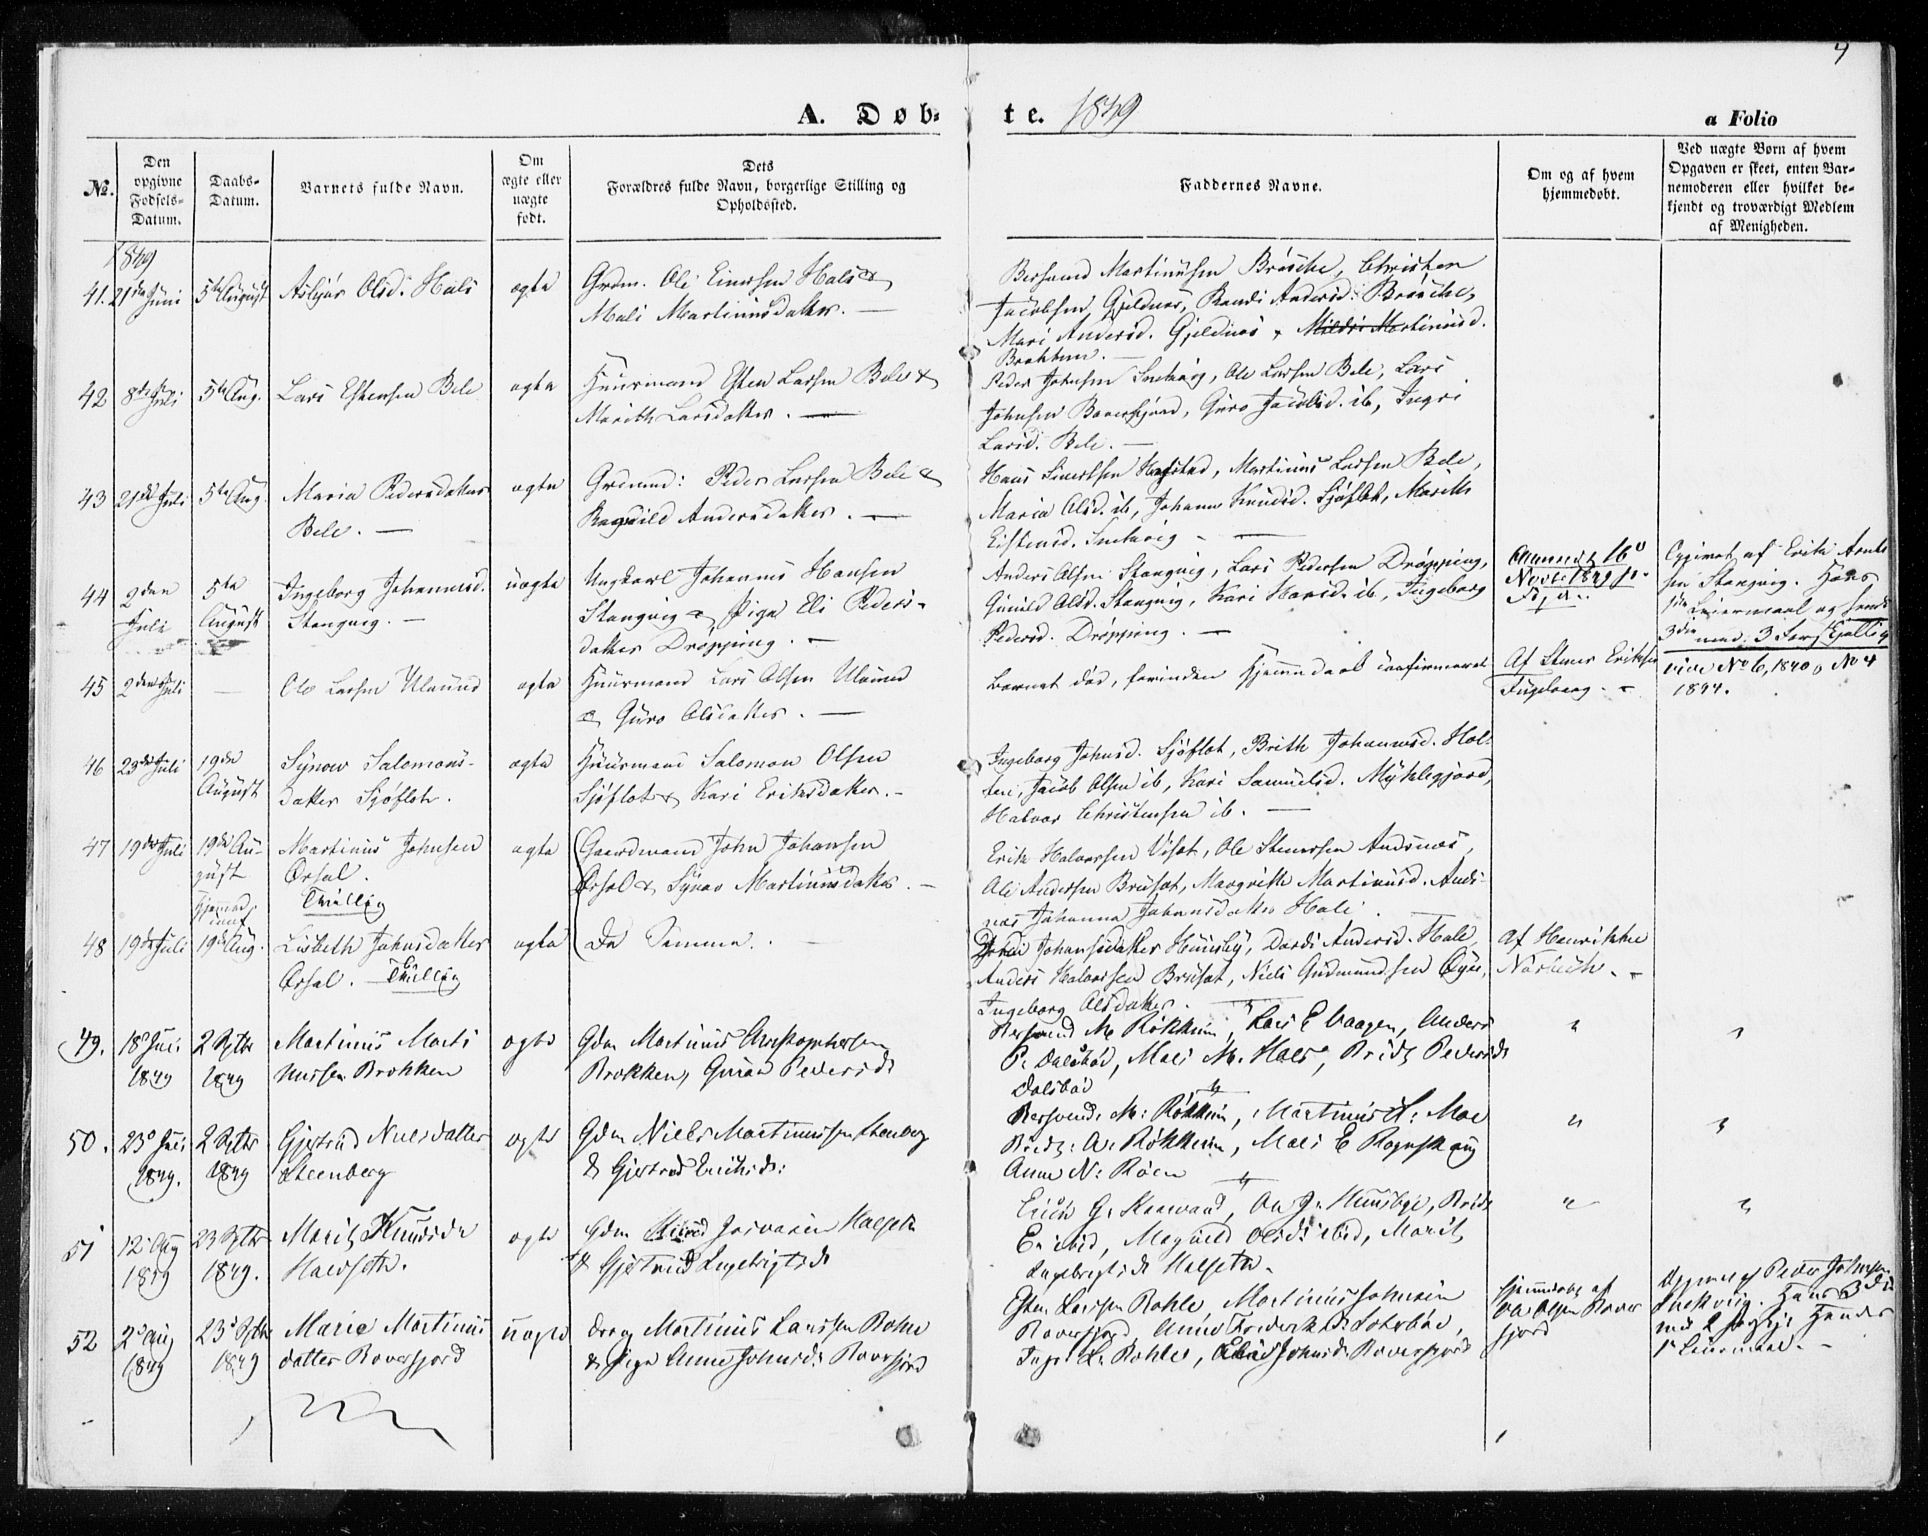 4
A. Døb-
te. 1849
a Folio
No.
Den opgivne Fødsels-Datum.
Daabs-Datum.
Barnets fulde Navn.
Om ægte eller uægte født.
Dets Forældres fulde Navn, borgerlige Stilling og Opholdssted.
Faddernes Navne.
Om og af hvem hjemmedøbt.
Ved uægte Børn af hvem Opgaven er skeet, enten Barnemoderen eller hvilket bekjendt og troværdigt Medlem af Menigheden.
1849
41. 21de Juni 5te August Olsd. Hals ægte Grdm. Ole Einersen Hals &
Mali Martinusdatter. —
Bersvend Martinusen Brøske, Christen
Jacobsen Gjeldnes, Randi Andersd. Brøske,
Mari Andersd. Gjeldnes & Martinusd.
42 8de Juli 5te Aug. Lars Estensen Bele ægte Huusmand Esten Larsen Bele &
Marith Larsdatter. —
Peder Johnsen Snekvig, Ole Larsen Bele, Lars
Johnsen Bøverfjord, Guro Jacobsd. ib, Ingri
Larsd. Bele. —
43 21de Juli 5te Aug. Maria Pedersdatter
Bele. —
ægte Grdmand: Peder Larsen Bele &
Ragnild Andersdatter. —
Hans Sivertsen Hagstad, Martinus Larsen Bele,
Maria Olsd. ib, Johanna Knudsd. Sjøflot, Marith
Eistensd. Snekvig —
44 2den Juli 5te August Ingeborg Johannesd.
Stangvig. —
uægte Ungkarl Johannes Hansen
Stangvig & Pige Eli Peders-
datter Drøpping. —
Anders Olsen Stangvig, Lars Pedersen Drøpping,
Gunild Olsd. Stangvig, Kari Hansd. ib, Ingeborg
Pedersd. Drøpping. —
Opgivet af Erik Arnt-
sen Stangvig. Hans
1ste Leiermaal og hendes
3die med 3 Forskjellige
vide No 6, 1840, No 4
1844.
45 2den Juli — Ole Larsen Ulvund ægte Huusmand Lars Olsen Ulvund
& Guro Olsdatter. —
Barnet død, forinden Hjemmedaab confirmeret
Af Stener Eriksen
Fugelvaag. —
46 23de Juli 19de August Synow Salomons-
datter Sjøflot.
ægte Huusmand Salomon Olsen
Sjøflot & Kari Eriksdatter. —
Ingeborg Johnsd. Sjøflot, Brith Johannesd. Hol-
ten, Jacob Olsen ib, Kari Samuelsd. Myklegjerd,
Halvor Christensen ib. —
47 19de Juli 19de August Martinus Johnsen
Ørsal.
Tvilling
ægte Gaardmand John Johansen
Ørsal & Synøv Martinusdatter. —
Erik Halvorsen Viset, Ole Stenersen Andsnes,
Ole Andersen Bruset, Margrethe Martinusd. Ands-
nes Johanna Johansdatter Hals.
48 19de Juli 19de Aug. Lisbeth Johnsdatter
Ørsal. Tvilling
ægte De Samme. —
Johansdatter Huusby, Dordi Andersd. Hals,
Anders Halvorsen Bruset, Niels Gudmundsen Øye,
Ingeborg Olsdatter.
Af Henrikke
49. 18 Juni
1849
2 Sptbr
1849
Martinus Marti
nussen Brøkken
ægte Gdm Martinus Christophersen
Brøkken, Guroa Pedersdr
Bersvend M Røkkum, Lars E Vaagen, Anders
P. Dalsbøe, Mali M. Hals, Brit Pedersdr
Dalsbøe
50. 23 Juni
1849.
2 Sptbr
1849
Gjertrud Nielsdatter
Steenberg
ægte Gdm Niels Martinussen Stenberg
& Gjertrud Erichsdr:
Bersvend: M: Røkkum, Martinus H: Moe
Brit: A: Røkkum, Mali E Rognskaug
Anne N: Røen
51 12 Aug
1849
23 Sptbr
1849.
Marit Knudsdr
Halseth.
ægte Gdm Knud Halseth
& Gjertrud Ingebrigtsdr
Erich G. Kaarvand, Ole J. Huusbye, Brit
E. ibid, Magnild Olsdr ibid, Marit
Ingebrigtsdr Halseth.
52 2 Aug
1849
23 Sptbr
1849
Marie Martinus
datter Bøverfjord
uægte Dreng Martinus Larssen Bøhle
& Pige Anne Johnsdr Bøverfjord
Esten Larssen Bøhle, Martinus Johnsen
Bøverfjord, Anne
Ingri L: Bøhle, Johnsdr Bøverfjord
hjemmedøbt af
Ole Olsen Bøver
fjord
Opgivet af Peder Johnsen
Snekvig. Hans 3die
med 2 Hendes
1ste Leiermaal. —